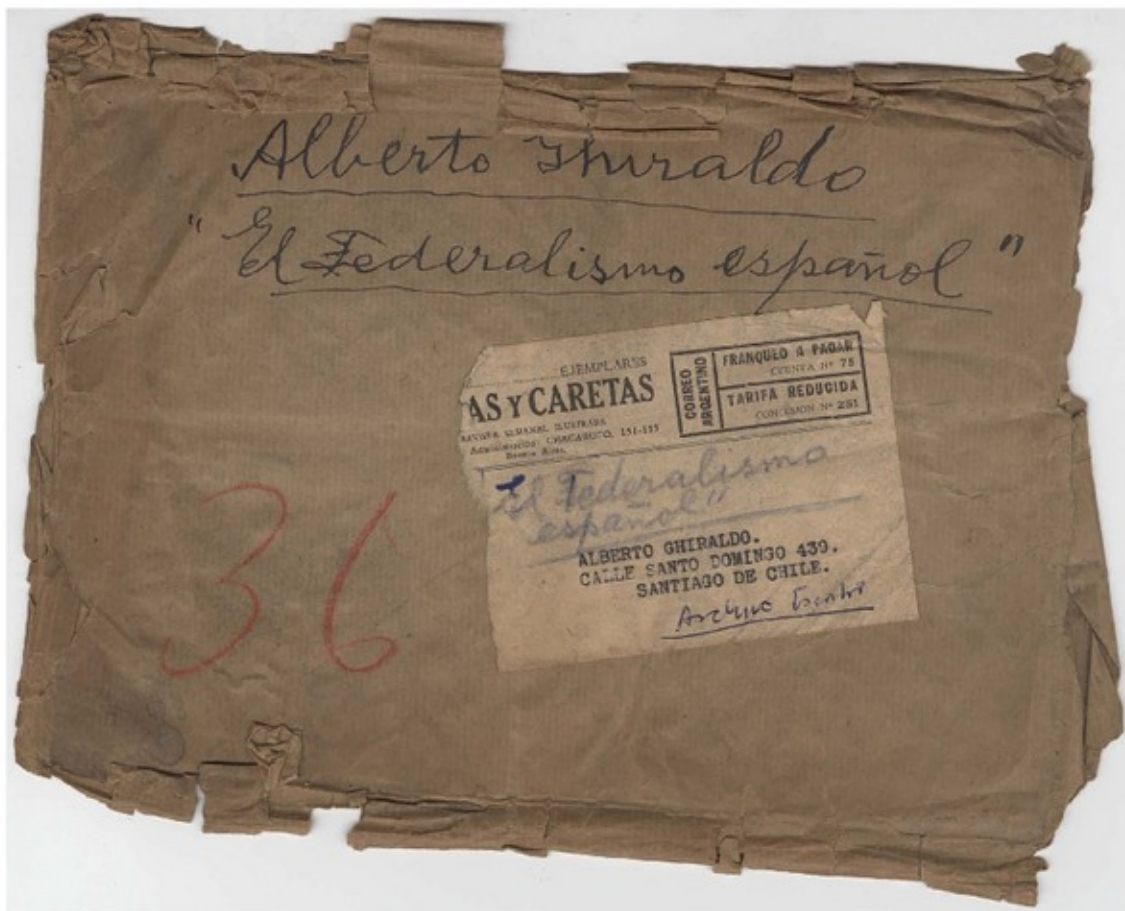 Alberto Ghiraldo
"El Federalismo español"
EJEMPLARES
AS Y CARETAS
SEMANAL ILUSTRADA
Administración: CHACABUCO, 151-155
Buenos Aires.
CORREO ARGENTINO
FRANQUEO A PAGAR
CUENTA Nº 75
TARIFA REDUCIDA
CONCESION Nº 251
El Federalismo
español"
ALBERTO GHIRALDO.
CALLE SANTO DOMINGO 439.
SANTIAGO DE CHILE.
36